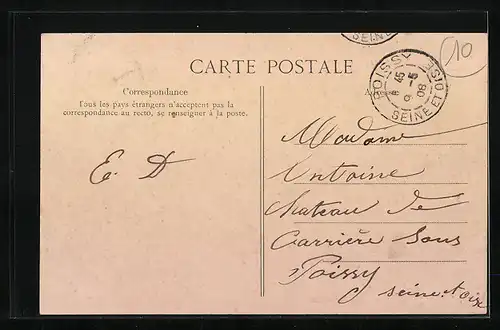 SEINE
10
CARTE POSTALE
POISSY
8 45
9 -5
08
SEINE ET OISE
Correspondance
Tous les pays étrangers n'acceptent pas la
correspondance au recto, se renseigner à la poste.
E. D
Madame
Antoine
chateau de
Carrière sous
Poissy
seine et oise